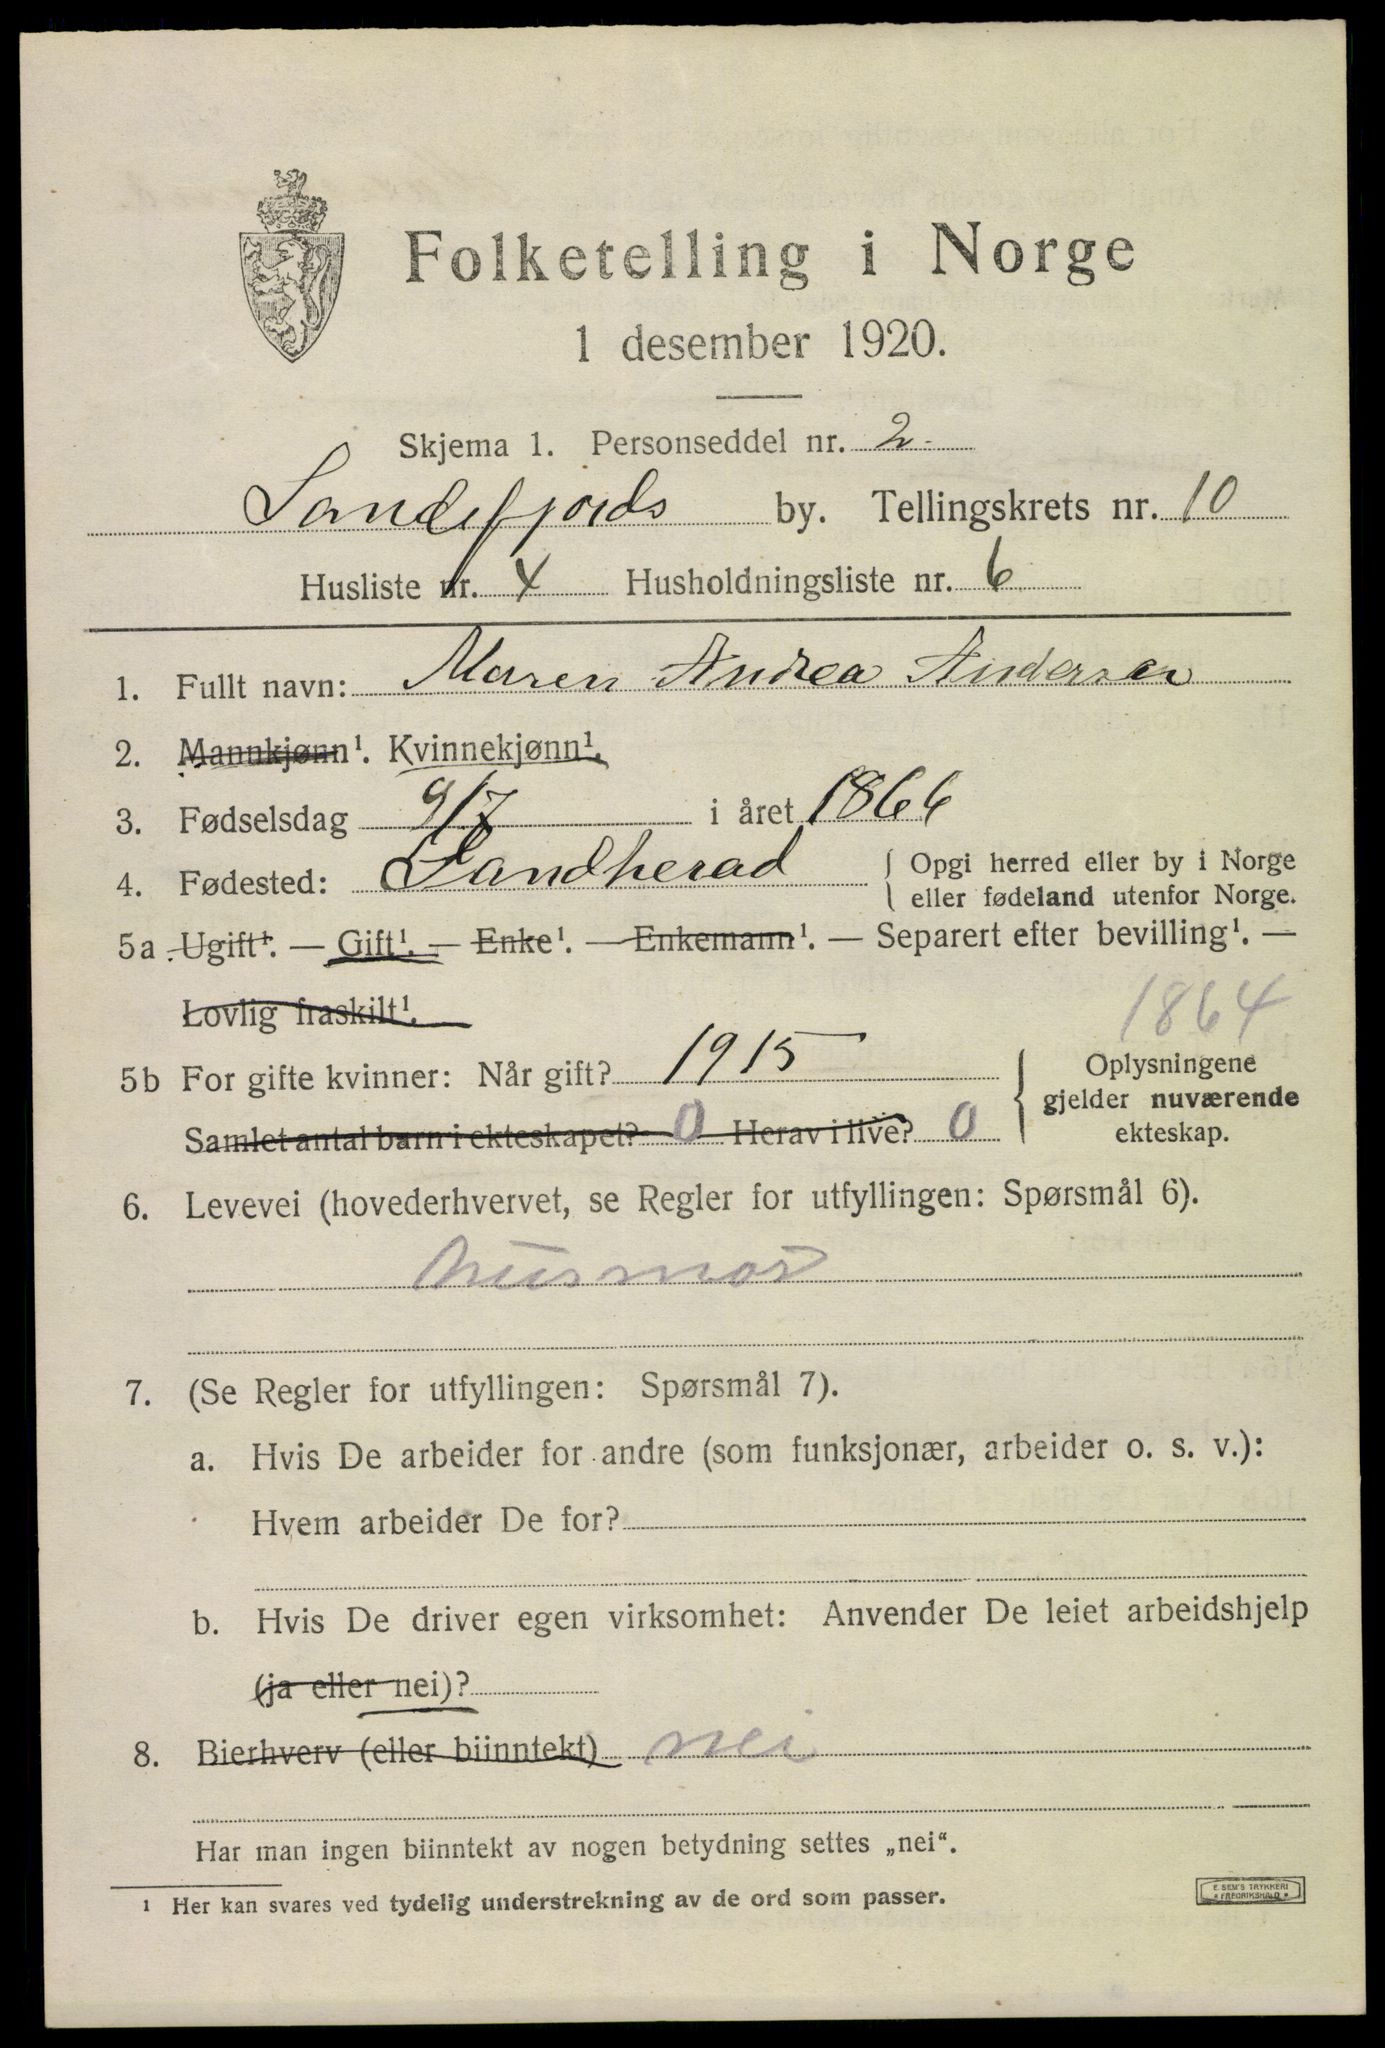 Folketelling i Norge
1 desember 1920.
Skjema 1. Personseddel nr. 2.
Sandefjords by. Tellingskrets nr. 10
Husliste nr. 4 Husholdningsliste nr. 6
1. Fullt navn: Maren Andrea Andersen
2. Mannkjønn¹. Kvinnekjønn¹.
3. Fødselsdag 9/7 i året 1866
4. Fødested: Sandherad { Opgi herred eller by i Norge
eller fødeland utenfor Norge.
5a Ugift¹. — Gift¹. — Enke¹. — Enkemann¹. — Separert efter bevilling¹. —
Lovlig fraskilt¹.
1864
5b For gifte kvinner: Når gift? 1915
Samlet antal barn i ekteskapet? 0 Herav i live? 0
} Oplysningene
gjelder nuværende
ekteskap.
6. Levevei (hovederhvervet, se Regler for utfyllingen: Spørsmål 6).
husmor
7. (Se Regler for utfyllingen: Spørsmål 7).
a. Hvis De arbeider for andre (som funksjonær, arbeider o. s. v.):
Hvem arbeider De for?
b. Hvis De driver egen virksomhet: Anvender De leiet arbeidshjelp
(ja eller nei)?
8. Bierhverv (eller biinntekt) nei
Har man ingen biinntekt av nogen betydning settes „nei“.
¹ Her kan svares ved tydelig understrekning av de ord som passer.
E. SEM'S TRYKKERI
* FREDRIKSHALD *